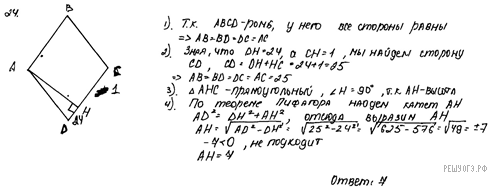 24.
B
A
C
1
H
24
D
1). Т.к. ABCD-ромб, у него все стороны равны
=> AB=BD=DC=AC
2) Зная, что DH=24, а CH=1, мы найдем сторону
CD, CD=DH+HC=24+1=25
=> AB=BD=DC=AC=25
3). △AHC-прямоугольный, ∠H=90°, т.к. AH-высота
4). По теореме Пифагора найдем катет AH
AD²=DH²+AH², отсюда выразим AH
AH=√AD²-DH²=√25²-24²=√625-576=√49=±7
-7<0, не подходит
AH=7
Ответ: 7
РЕШУОГЭ.РФ